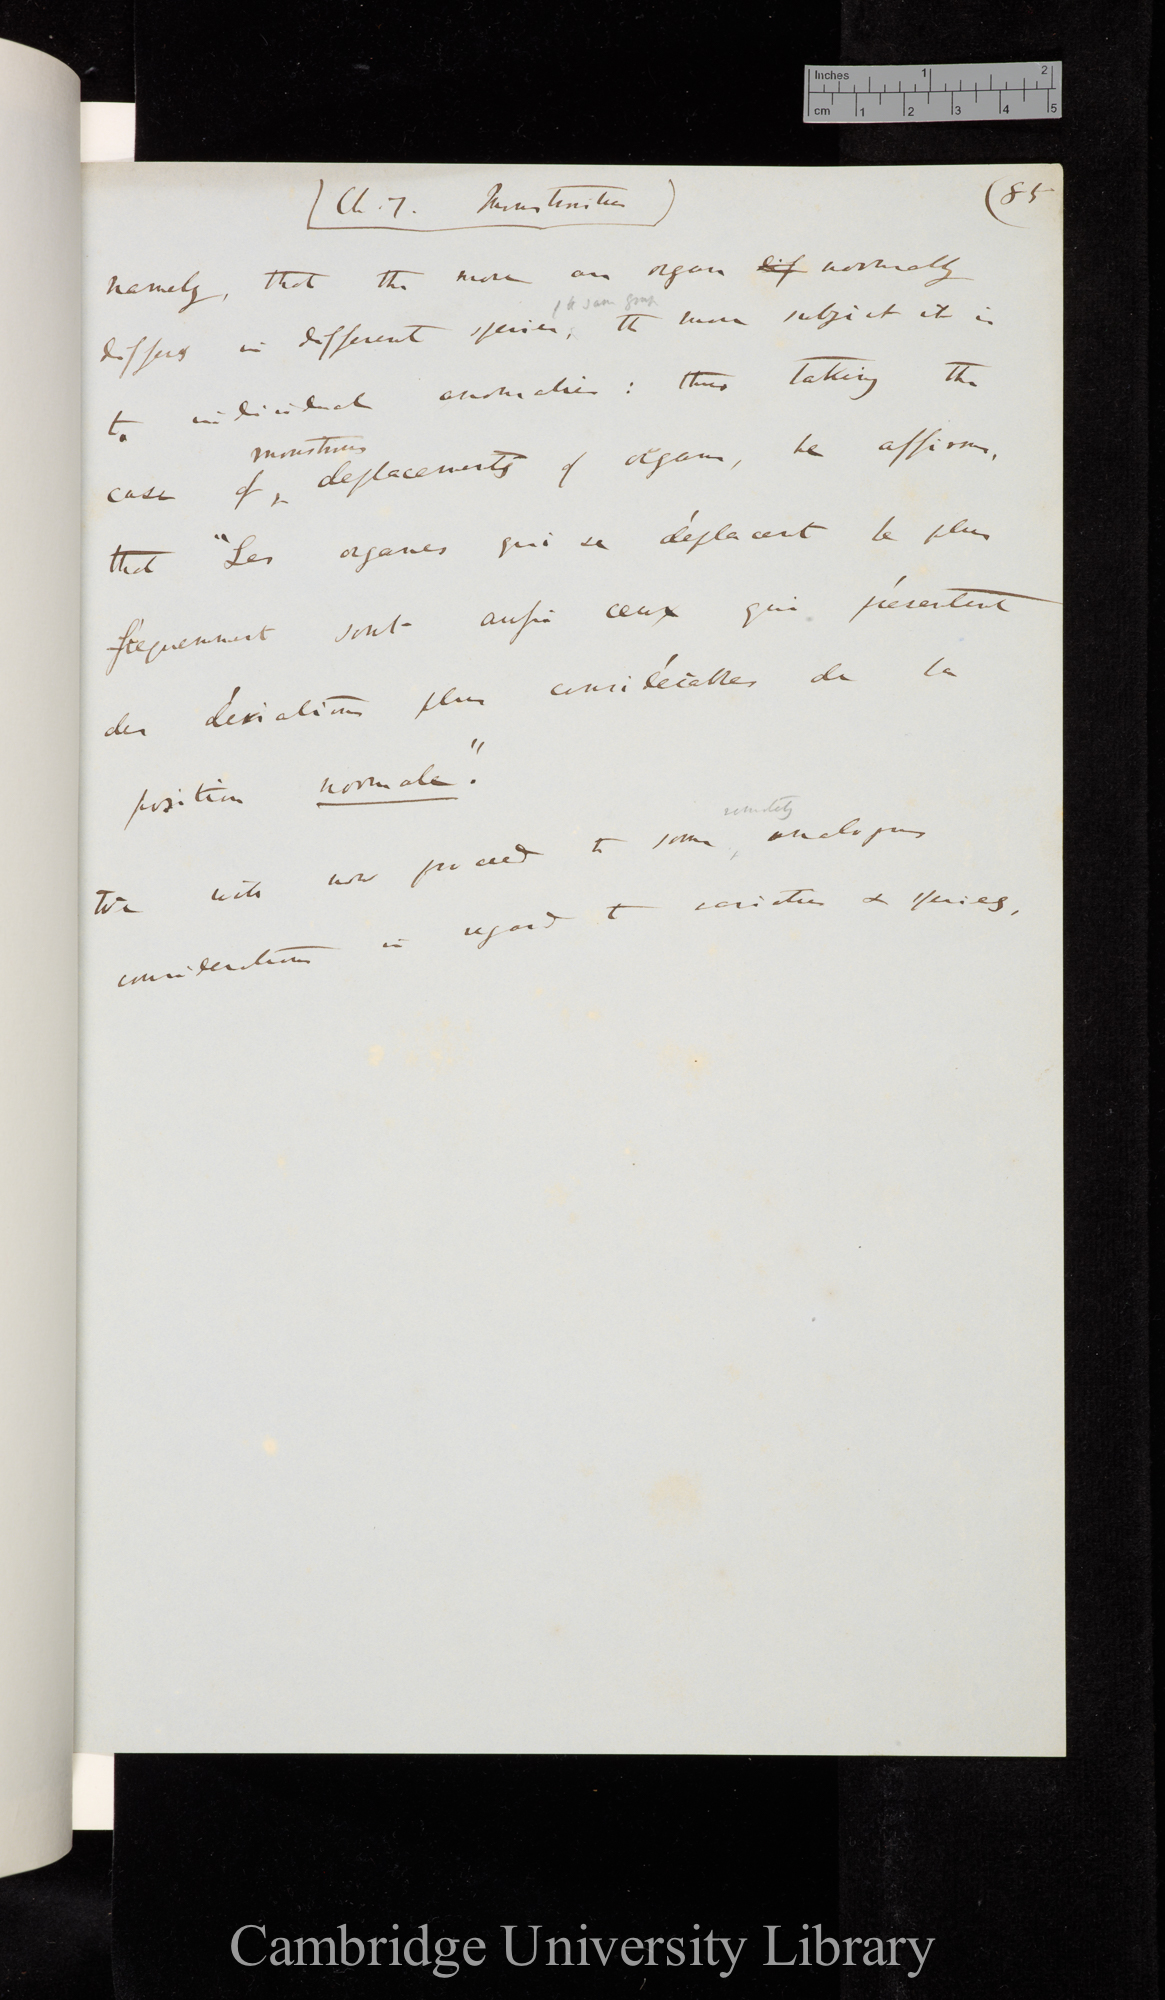 Inches 1 2
cm 1 2 3 4 5
(Ch. 7. Monstrosities)
(85
namely, that the more an organ dif normally
of the same group
differs in different species, the more subject it is
to individual anomalies: thus taking the
monstrous
case of deplacements of organs, he affirms,
that "Les organes qui se déplacent le plus
fréquemment sont aussi ceux qui présentent
des déviations plus considérables de la
position normale."
remotely
We will now proceed to some analogous
considerations in regard to varieties & species,
Cambridge University Library